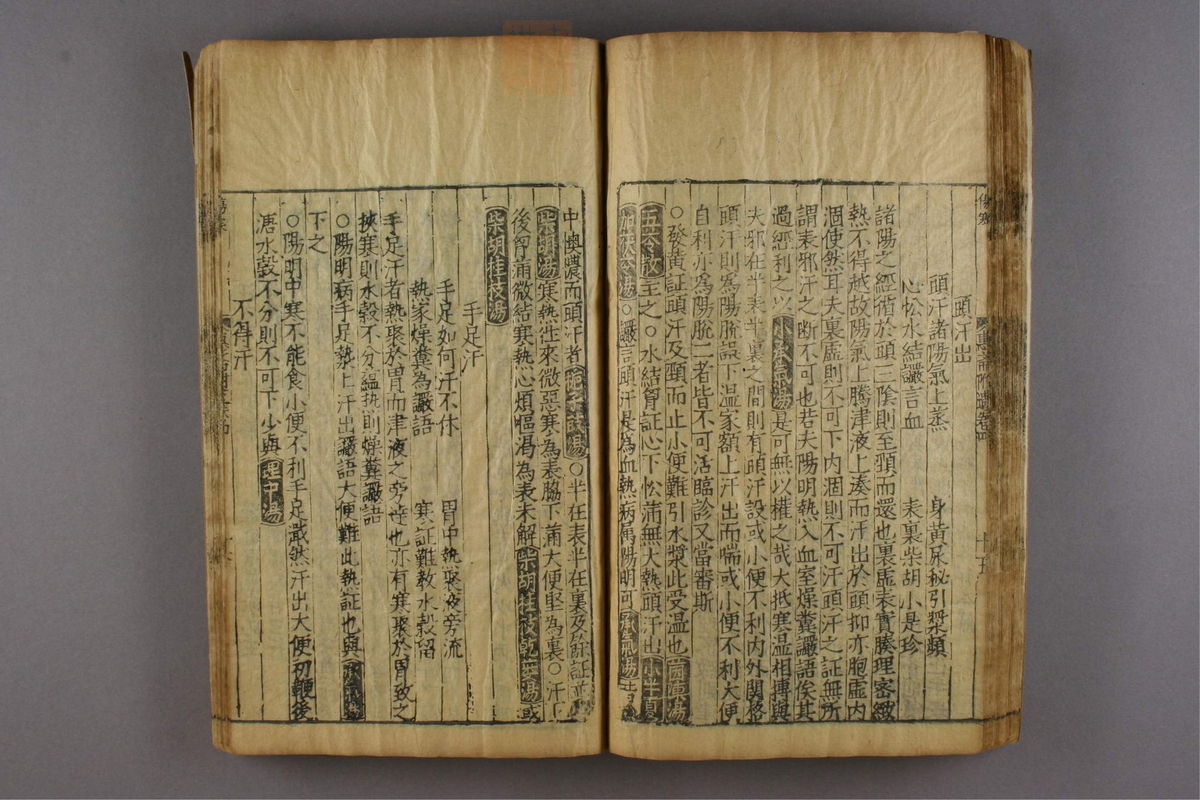 頭汗出
頭汗諸陽氣上蒸　身黃尿秘引漿頻
心忪水結讝言血　表裏柴胡小是珍
諸陽之經循於頭三陰則至頸而還也裏虛表實腠理密緻
熱不得越故陽氣上騰津液上湊而汗出於頭抑亦胞虛內
涸使然耳夫裏虛則不可下內涸則不可汗頭汗之証無所
謂表邪汗之斷不可也若夫陽明熱入血室燥糞讝語俟其
過經利之以小承氣湯是可無以權之哉大抵寒温相搏與
夫邪在半表半裏之間則有頭汗設或小便不利內外関格
頭汗則為陽脫誤下温家額上汗出而喘或小便不利大便
自利亦為陽脫二者皆不可活臨診又當審斯
○發黃証頭汗及頸而止小便難引水漿此受温也茵蔯湯
五苓散主之○水結胷証心下忪滿無大熱頭汗出小半夏
加茯苓湯○讝言頭汗是為血熱病屬陽明可承氣湯
中懊憹而頭汗者梔子豉湯○半在表半在裏及餘証並
柴胡湯寒熱往來微惡寒為表脇下滿大便堅為裏○汗下
後胷滿微結寒熱心煩嘔渴為表未解柴胡桂枝乾姜湯或
柴胡桂枝湯
手足汗
手足如何汗不休　胃中熱聚液旁流
熱家燥糞為讝語　寒証難教水穀留
手足汗者熱聚於胃而津液之旁達也亦有寒聚於胃致之
挾寒則水穀不分蘊熱則燥糞讝語
○陽明病手足漐漐汗出讝語大便難此熱証也與承氣湯
下之
○陽明中寒不能食小便不利手足濈然汗出大便初鞕後
溏水穀不分則不可下少與理中湯
不得汗